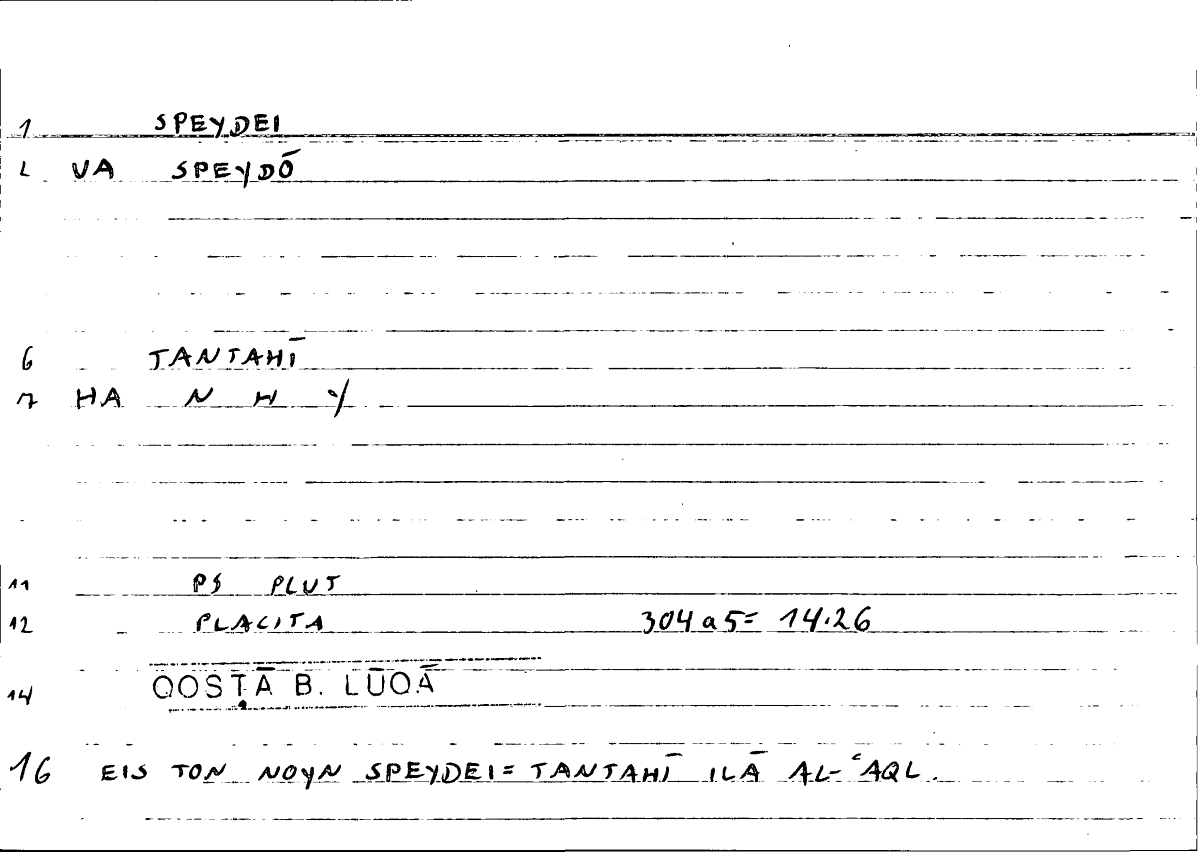 1 SPEYDEI
2 VA SPEYDŌ
6 TANTAHĪ
7 HA N H Y
11 PS PLUT
12 PLACITA 304a5= 14.26
14 QOSṬĀ B. LŪQĀ
16 EIS TON NOYN SPEYDEI= TANTAHĪ ILĀ AL-ʿAQL.